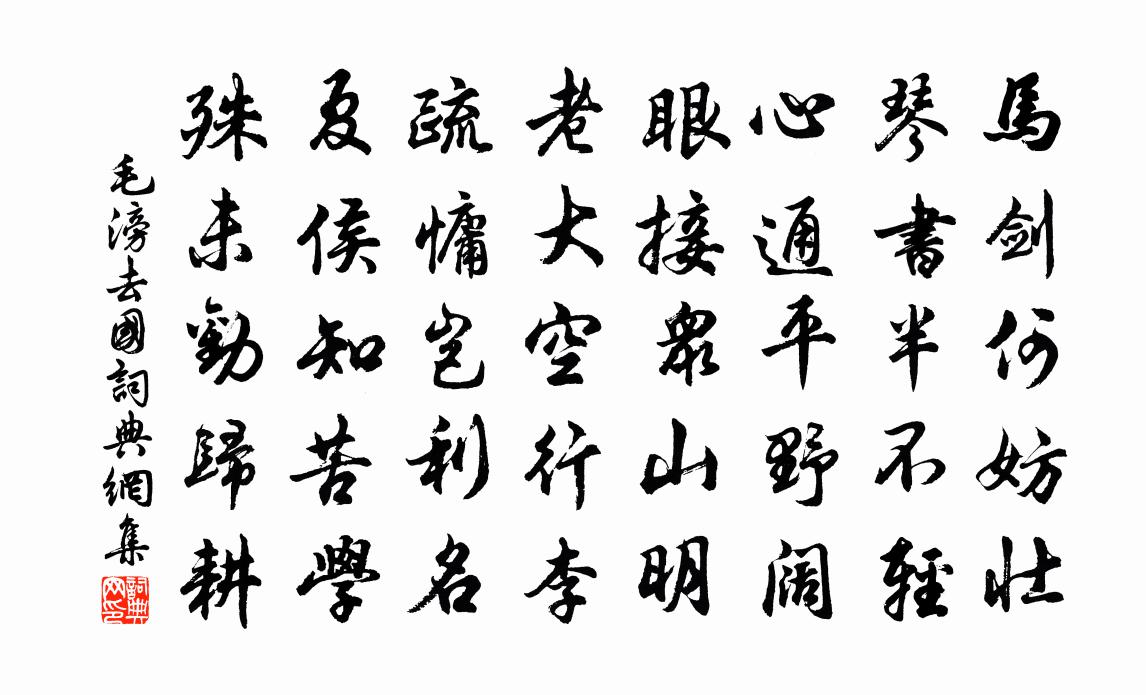 馬剑何妨壮
琴書半不輕
心通平野阔
眼接衆山明
老大空行李
疏慵岂利名
夏侯知苦學
殊未勸歸耕
毛滂去國詞典網集